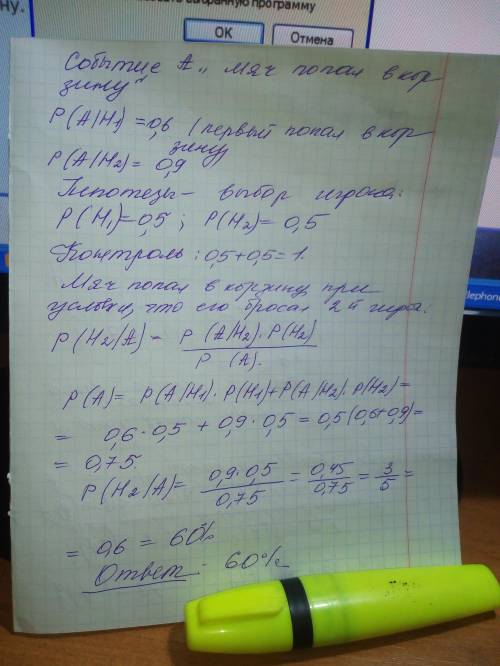 ну.
выбранную программу
OK
Отмена
Событие A „ Мяч попал в кор
зину"
P(A/H1) = 0,6 (первый попал в кор
зину
P(A/H2) = 0,9
Гипотезы – выбор игрока:
P(H1)=0,5 ; P(H2)= 0,5
Контроль : 0,5+0,5=1.
Мяч попал в корзину при
условии, что его бросал 2й игрок:
P(H2/A) = P (A/H2) · P(H2)
P (A).
P(A)= P(A/H1) · P(H1)+P(A/H2) · P(H2)=
= 0,6 · 0,5 + 0,9 · 0,5 = 0,5(0,6+0,9)=
= 0,75.
P(H2/A)= 0,9·0,5 = 0,45 = 3 =
0,75 0,75 5
= 0,6 = 60%
Ответ : 60%